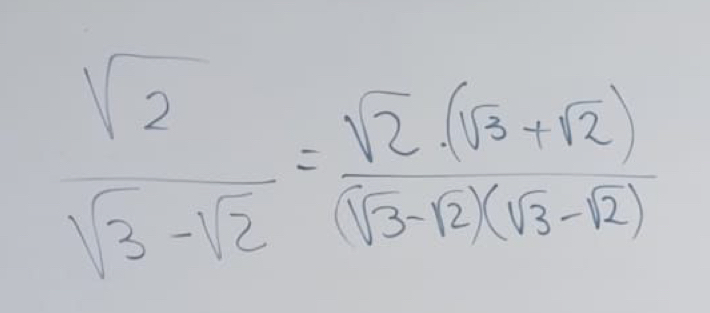 √2 / (√3 - √2) = √2 · (√3 + √2) / (√3 - √2)(√3 - √2)